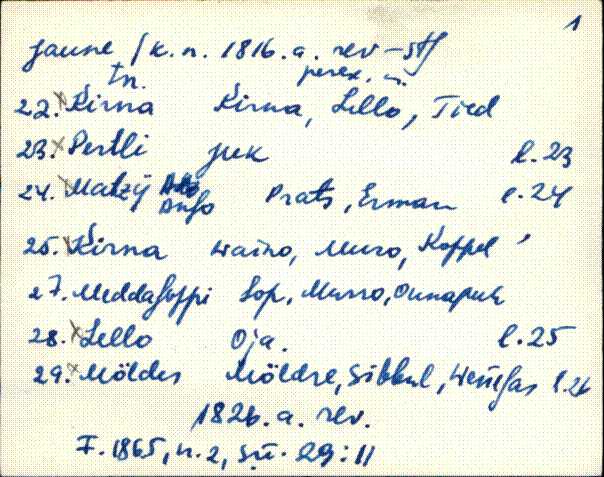 1
Jaune /k. n. 1816. a. rev -
tn. perex. n.
22. x Kirna Kirna, Lello, Tied
23. x Pertli Juk l. 23
24. x Matzi Anso Prats, Erman l. 24
25. x Kirna Waino, Muro, Koppel
27. Meddasoppi Sop, Murro, Ounapuu
28. x Lello Oja. l. 25
29. x Möldes Möldre, Sibbul, l. 26
1826. a. rev.
F. 1865, n. 2, sü. 29:11